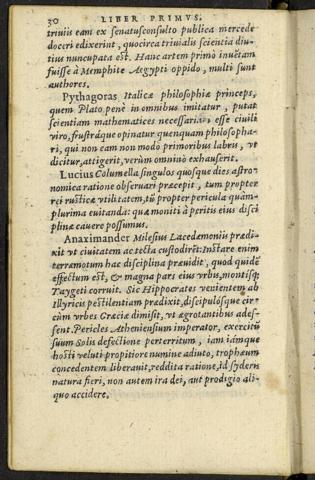 30 LIBER PRIMVS.
triviis eam ex senatusconsulto publica mercede
doceri edixerint, quocirca trivialis scientia diu-
tius nuncupata est. Hanc artem primò inuẽtam
fuisse à Memphite Aegypti oppido, multi sunt
authores.
Pythagoras Italicæ philosophiæ princeps,
quem Plato penè in omnibus imitatur, putat
scientiam mathematices necessariam esse ciuili
viro, frustráque opinatur quenquam philosopha-
ri, qui non eam non modò primoribus labris, vt
dicitur, attigerit, verùm omninò exhauserit.
Lucius Columella singulos quosque dies astro-
nomica ratione obseruari præcepit, tum propter
rei rusticæ vtilitatem, tũ propter pericula quàm-
plurima euitanda: quæ moniti à peritis eius disci
plinæ cauere possumus.
Anaximander Milesius Lacedæmoniis prædi-
xit vt ciuitatem ac tecta custodirẽt: Instare enim
terræmotum hac disciplina præuidit, quod quidẽ
effectum est, & magna pars eius vrbis, montisq;
Taygeti corruit. Sic Hippocrates venientem ab
Illyricis pestilentiam prædixit, discipulósque cir-
cùm vrbes Græciæ dimisit, vt ægrotantibus ades-
sent. Pericles Atheniensium imperator, exercitũ
suum Solis defectione perterritum, iam iámque
hosti veluti propitiore numine adiuto, trophæum
concedentem liberauit, reddita ratione, id syderũ
natura fieri, non autem ira dei, aut prodigio ali-
quo accidere.